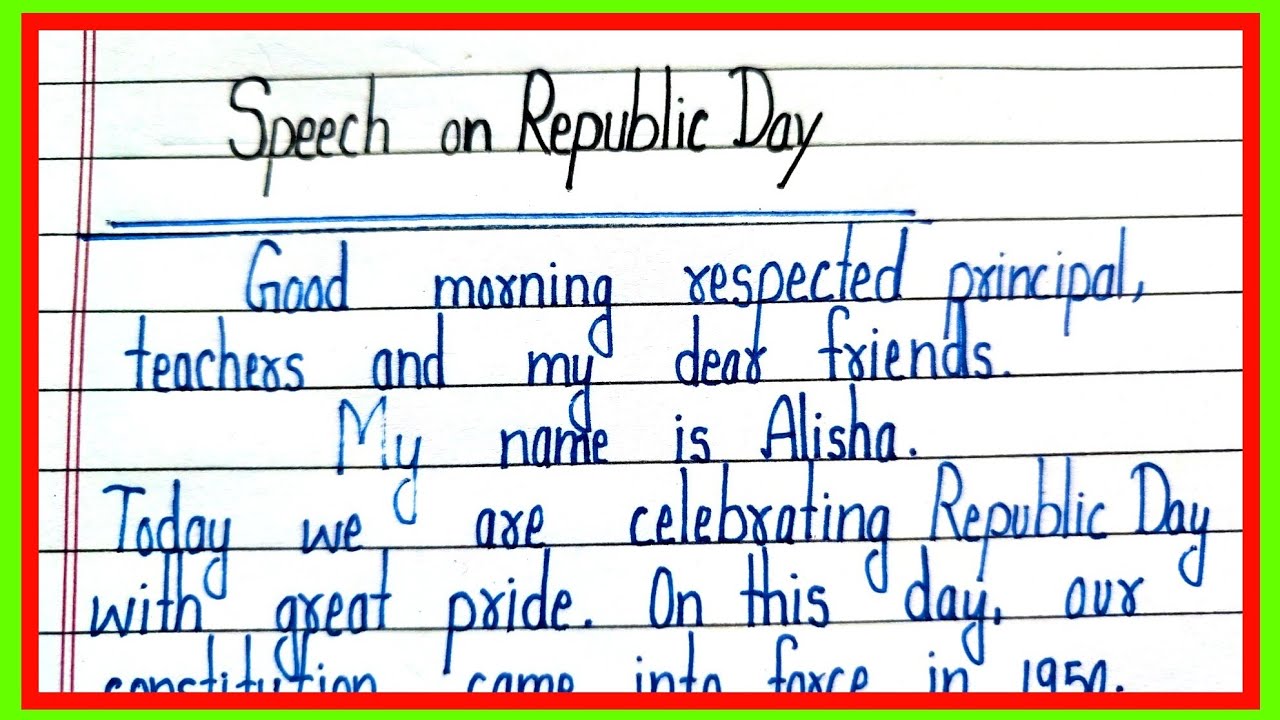 Speech on Republic Day
Good morning respected principal,
teachers and my dear friends.
My name is Alisha.
Today we are celebrating Republic Day
with great pride. On this day, our
constitution came into force in 1950.